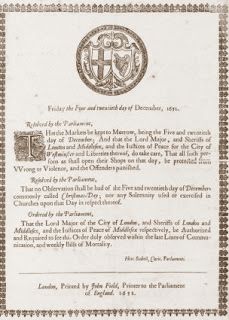 Friday the Five and twentieth day of December, 1652.
Resolved by the Parliament,
THat the Markets be kept to Morrow, being the Five and twentieth
day of December; And that the Lord Major, and Sheriffs of
London and Middlesex, and the Justices of Peace for the City of
Westminster and Liberties thereof, do take care, That all such per-
sons as shall open their Shops on that day, be protected from
VVrong or Violence, and the Offenders punished.
Resolved by the Parliament,
That no Observation shall be had of the Five and twentieth day of December
commonly called Christmas-Day; nor any Solemnity used or exercised in
Churches upon that Day in respect thereof.
Ordered by the Parliament,
That the Lord Major of the City of London, and Sheriffs of London and
Middlesex, and the Justices of Peace of Middlesex respectively, be Authorized
and Required to see this Order duly observed within the late Lines of Commu-
nication, and weekly Bills of Mortality.
Hen: Scobell, Cleric. Parliamenti.
London, Printed by John Field, Printer to the Parliament
of England. 1652.